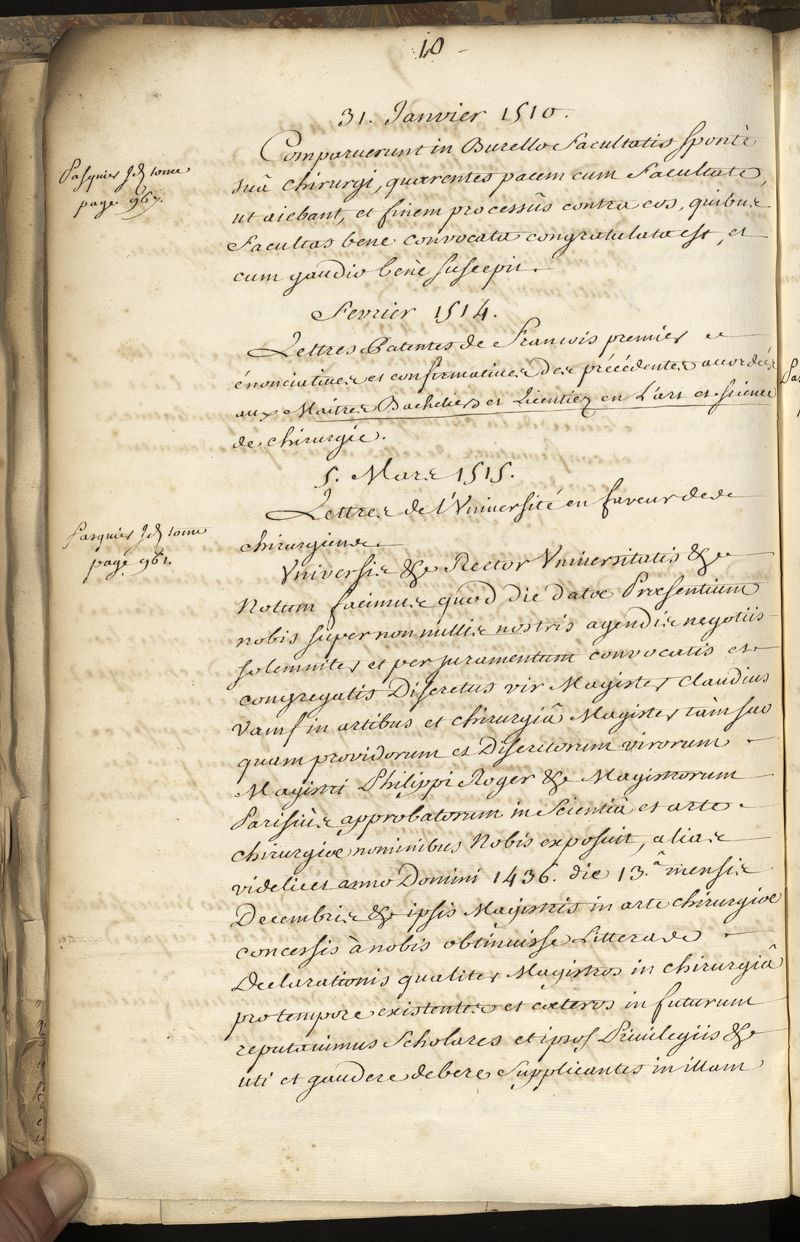 10
31. Janvier 1510.
Comparuerunt in Burello Facultatis sponte
suâ Chirurgi, quærentes pacem cum Facultate,
ut aiebant, et finem processûs contra eos, quibus
Facultas bene convocata congratulata est, et
cum gaudio bene suscepit.
Pasquier Id tome
page 967.
Fevrier 1514.
Lettres Patentes de Francois premier
énonciatives et confirmatives des précédentes accordées
aux Maitres Bacheliers et Licentiez en L'art et Science
de chirurgie.
5. Mars 1515.
Lettres de l'Université en faveur des
chirurgiens.
Pasquier Id tome
page 961.
Universis &c Rector Universitatis &c
Notum facimus quod die datæ Præsentium
nobis super nonnullis nostris agendis negotiis
solemniter et per juramentum convocatis et
congregatis Discretus vir Magister Claudius
Vanif in artibus et chirurgiâ Magister tàm suo
quam providorum et Discretorum virorum
Magistri Philippi Roger &c Magistrorum
Parisiis approbatorum in Scientiâ et arte
chirurgiæ nominibus Nobis exposuit, alias
videlicet anno Domini 1436. die 13.â mensis
Decembris &c ipsis Magistris in arte chirurgiæ
concessis à nobis obtinuisse Litteras
Declarationis qualiter Magistros in chirurgiâ
pro tempore existentes et cæteros in futurum
reputavimus Scholares et ipsos Privilegiis &c
uti et gaudere debere Supplicantes in illam